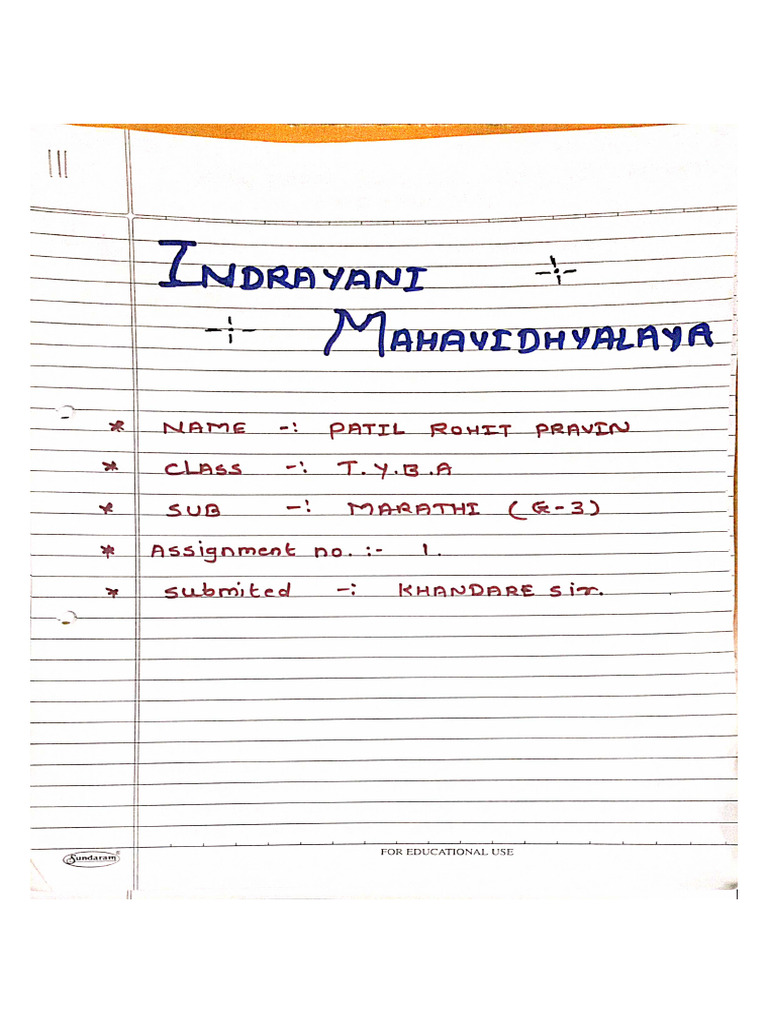 INDRAYANI
MAHAVIDHYALAYA
* NAME -: PATIL ROHIT PRAVIN
* CLASS -: T.Y.B.A
* SUB -: MARATHI (G-3)
* Assignment no. :- 1.
* submited -: KHANDARE sir.
Sundaram®
FOR EDUCATIONAL USE